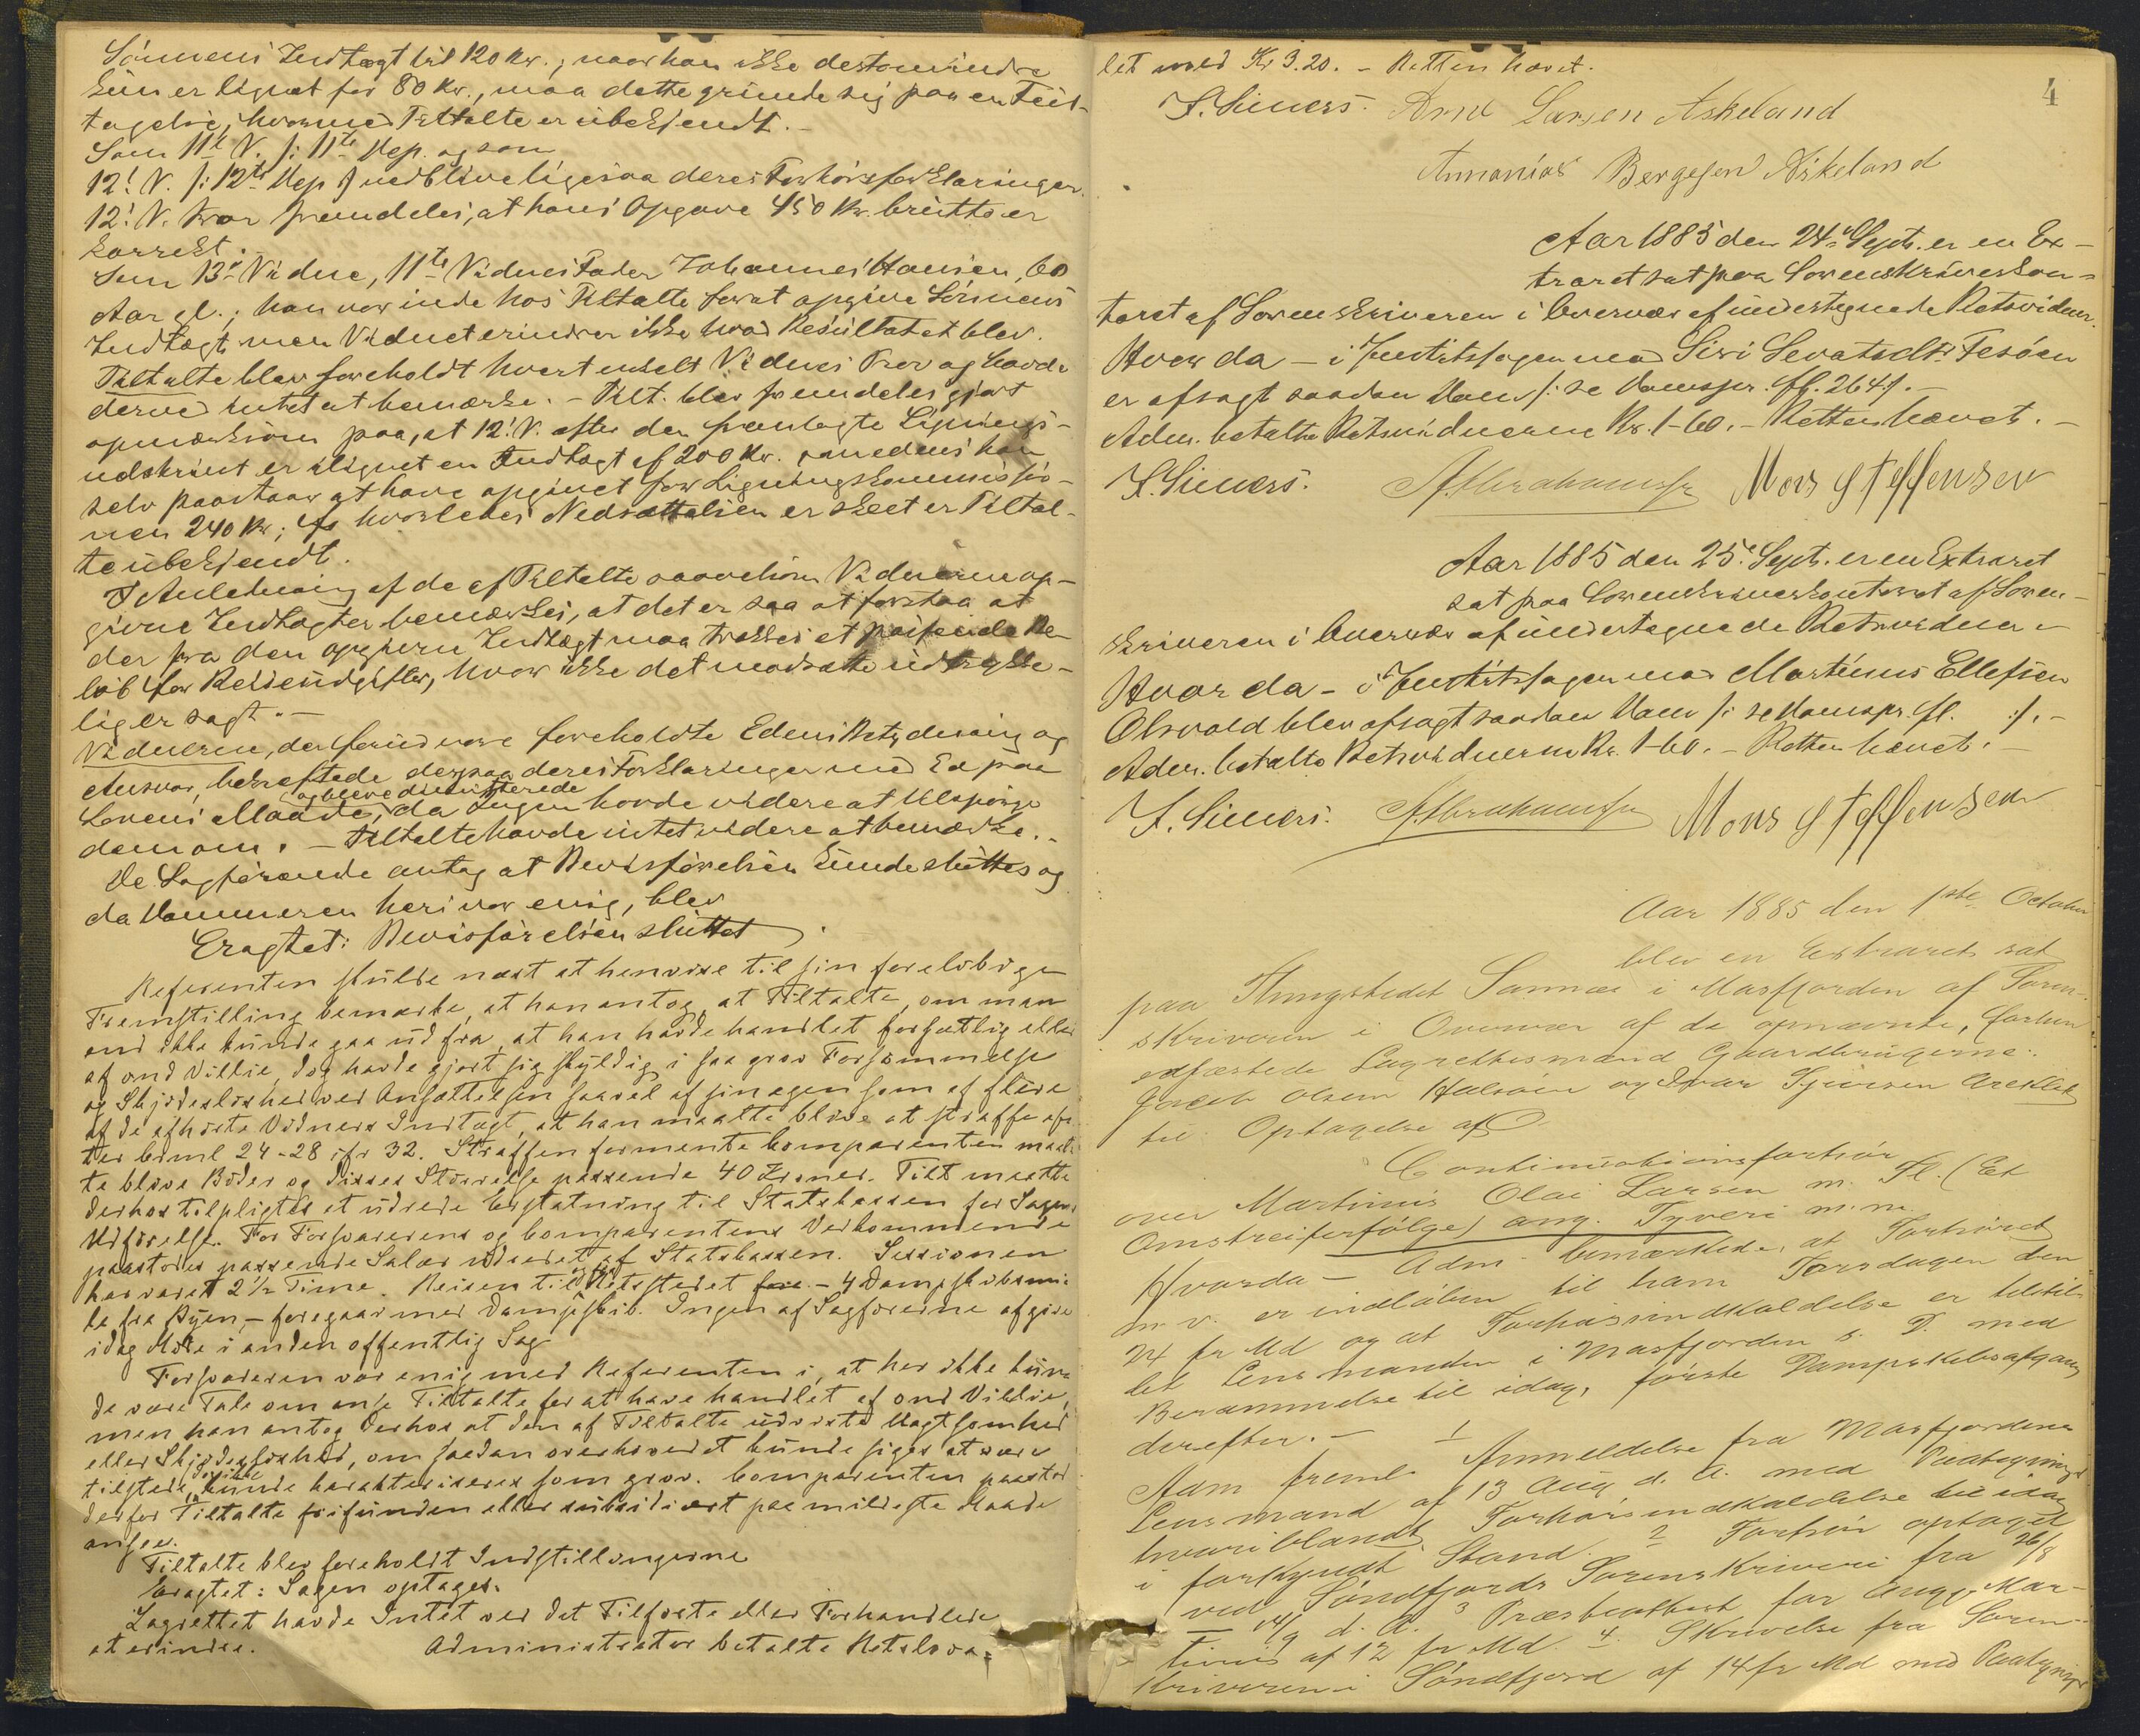 Sönnens Indtægt til 120 Kr.; naar han ikke destomindre
kun er lignet for 80 Kr., maa dette grunde sig paa en Feil-
tagelse, hvormed Tiltalte er ubekjendt. –
Som 11te V. /: 11te Dep. og som
12t V. /: 12te Dep /: vedblive ligesaa deres Forhörsforklaringer.
12t V. tror fremdeles, at hans Opgave 450 Kr. brutto er
korrekt.
Som 13de Vidne, 11te Vidnes Fader Johannes Hansen, 60
Aar gl.; han var inde hos Tiltalte forat opgive Sönnens
Indtægt men Vidnet erindrer ikke hvad Resultatet blev.
Tiltalte blev foreholdt hvert enkelt Vidnes Prov og havde
derved intet at bemærke. – Tilt. blev fremdeles gjort
opmærksom paa, at 12t V. efter den fremlagte Lignings-
udskrivt er ilignet en Indtægt af 200 Kr. medens han
selv paastaar at have opgivet for Ligningskommissio-
nen 240 Kr.; hvorledes Nedsættelsen er skeet er Tiltal-
te ubekjendt.
I Anledning af de af Tiltalte saavelsom Vidnerne op-
givne Indtægter bemærkes, at det er saa at forstaa at
der fra den opgivne Indtægt maa trækkes et passende Be-
löb for Reiseudgifter, hvor ikke det modsatte udtrykke-
lig er sagt. –
Vidnerne, der forud vare foreholdte Edens Betydning og
Ansvar, bekræftede derpaa deres Forklaringer med Ed paa
og bleve dimitterede
Lovens Maade, da Ingen havde videre at tilspörge
dem om. – Tiltalte havde intet videre at bemærke. –
De Sagförende antog at Bevisförelsen kunde sluttes og
da Dommeren heri var enig, blev
Eragtet: Bevisförelsen sluttet.
Referenten skulde næst at henvise til sin forelöbige
Fremstilling bemærke, at han antog, at Tiltalte, om man
end ikke kunde gaa ud fra, at han havde handlet forsætlig eller
af ond Villie, dog havde gjort sig skyldig i saa grov Forsömmelse
og Skjödeslöshed ved Ansættelsen saavel af sin egen som af flere
af de afhörte Vidners Indtægt, at han maatte blive at straffe ef-
ter krml 24-28 jfr 32. Straffen formente komparenten maat-
te blive Böder og disses Störrelse passende 40 Kroner. Tilt maatte
derhos tilpligtes at udrede Erstatning til Statskassen for Sagens
Udförelse. For Forsvarerens og komparentens Vedkommende
paastodes passende Salær udredet af Statskassen. Sessionen
har varet 2½ Time. Reisen til og fra Retsstedet – 4 Dampskibsmi-
le fra Byen, – foregaar med Dampskib. Ingen af Sagförerne afgive
idag Möte i anden offentlig Sag.
Forsvareren var enig med Referenten i, at her ikke kun-
de være Tale om anse Tiltalte for at have handlet af ond Villie,
men han antog derhos at den af Tiltalte udviste Uagtsomhed
eller Skjödeslöshed, om saadan overhovedet kunde siges at være
tilstede, ikke kunde karakteriseres som grov. Komparenten paastod
derfor Tiltalte frifunden eller subsidiært paa mildeste Maade
anseet.
Tiltalte blev foreholdt Indstillingerne
Eragtet: Sagen optages.
Lagrettet havde Intet ved det Tilförte eller Forhandlede
at erindre. Administrator betalte Retslova-
4
let med Kr 3.20. – Retten hævet.
F. Siewers. Arnd Larsen Askeland
Annanias Bergesen Askeland
Aar 1885 den 24de Septr. er en Ex-
traret sat paa Sorenskriverkon-
toret af Sorenskriveren i Overvær af undertegnede Retsvidner.
Hvor da – i Justitssagen mod Siri Sevatsdtr Fesöen
er afsagt saadan Dom /: se Domspr. fl. 264 :/. –
Adm. betalte Retsvidnerne Kr. 1-60. – Retten hævet. –
F. Siewers. A. Abrahamsen Mons Steffensen
Aar 1885 den 25de Septr. er en Extraret
sat paa Sorenskriverkontoret af Soren-
skriveren i Overvær af undertegnede Retsvidner –
Hvor da – i Justitssagen mod Martinus Ellefsen
Olsvold blev afsagt saadan Dom /: se Domspr. fl. :/. –
Adm. betalte Retsvidnerne Kr. 1-60. – Retten hævet. –
F. Siewers. A. Abrahamsen Mons Steffensen
Aar 1885 den 1ste October
blev en Extraret sat
paa Thingstedet Sannæs i Masfjorden af Soren-
skriveren i Overvær af de opnævnte, forhen
edfæstede Lagrettesmænd Gaardbrugerne:
Jacob Olsen og Ivar
til Optagelse af
Continuationsforhör
over Martinus Olai Larsen m. Fl. (Et
Omstreiferfölge) ang. Tyveri m.m.
Hvorda – Adm bemærkede, at Forhöret
m. v. er indlöben til ham Torsdagen den
24 fr Md og at Forhörsindkaldelse er tilstil-
let Lensmanden i Masfjorden s. D. med
Berammelse til idag, förste Dampskibsafgang
derefter. –
Adm freml. 1 Anmeldelse fra Masfjordens
Lensmand af 13 Aug d. A. med Paategninger
hvoriblandt Forhörsindkaldelse til idag
i forkyndt Stand. 2 Forhör optaget
ved Söndfjords Sorenskriveri fra 26/8
– 14/9 d. A. 3 Præsteattest for Angj. Mar-
tinus af 12 fr Md. 4. Skrivelse fra Soren-
skriveren i Söndfjord af 14 fr Md med Paategninger